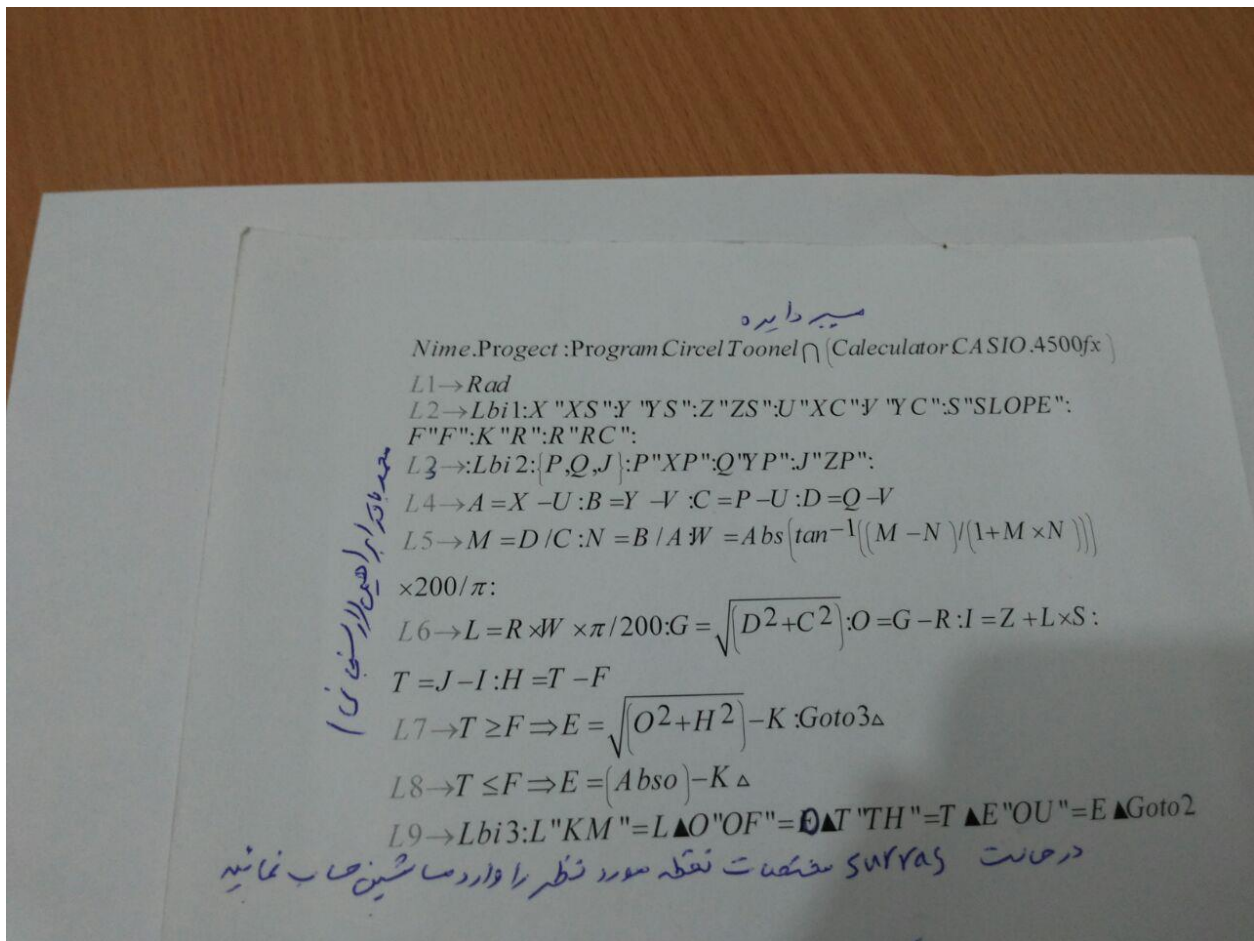 مسیر دایره
Nime.Progect :Program Circel Toonel ∩ (Caleculator CASIO.4500fx)
L1→Rad
L2→Lbi1:X "XS":Y "YS":Z"ZS":U"XC":V "YC":S"SLOPE":
F"F":K"R":R"RC":
L3→:Lbi2:{P,Q,J}:P"XP":Q"YP":J"ZP":
L4→A=X−U:B=Y−V:C=P−U:D=Q−V
L5→M=D/C:N=B/A:W=Abs(tan⁻¹((M−N)/(1+M×N)))
×200/π:
L6→L=R×W×π/200:G=√(D²+C²):O=G−R:I=Z+L×S:
T=J−I:H=T−F
L7→T≥F⇒E=√(O²+H²)−K:Goto3△
L8→T≤F⇒E=(Abso)−K△
L9→Lbi3:L"KM"=L▲O"OF"=O▲T"TH"=T▲E"OU"=E▲Goto2
در حالت survas مختصات نقطه مورد نظر را وارد ماشین حساب نمائید